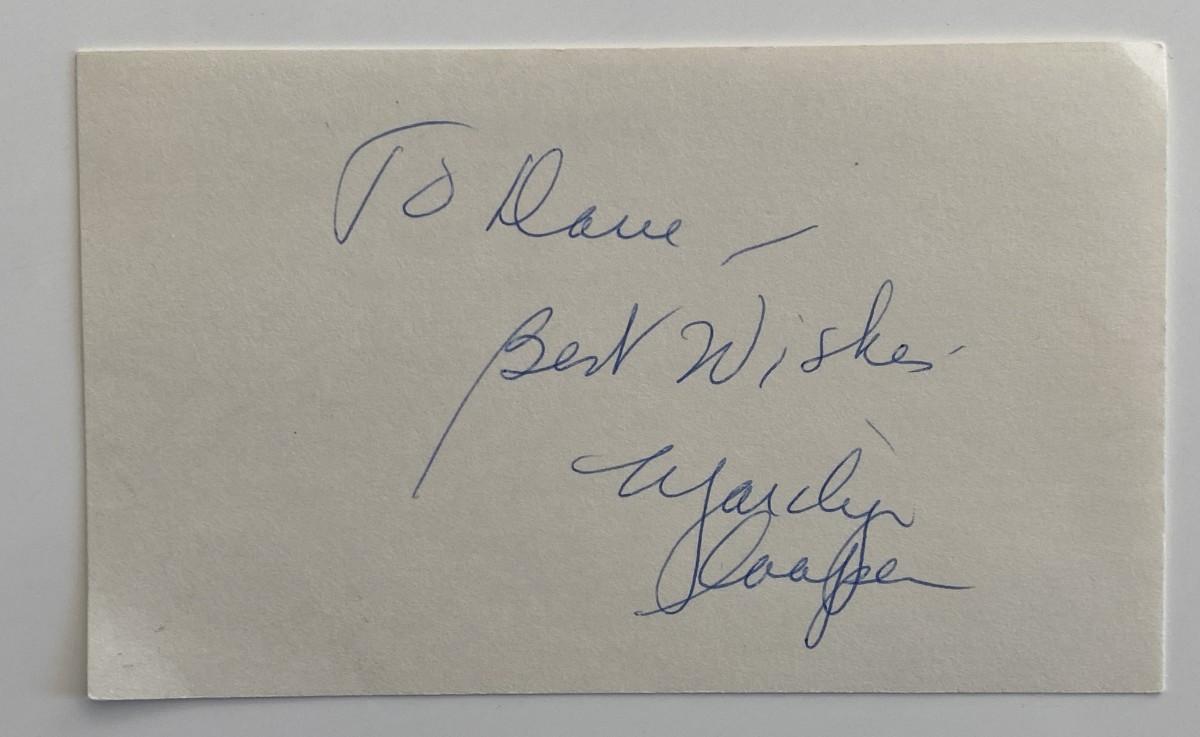 To Dave –
Best Wishes
Marilyn
Cooper